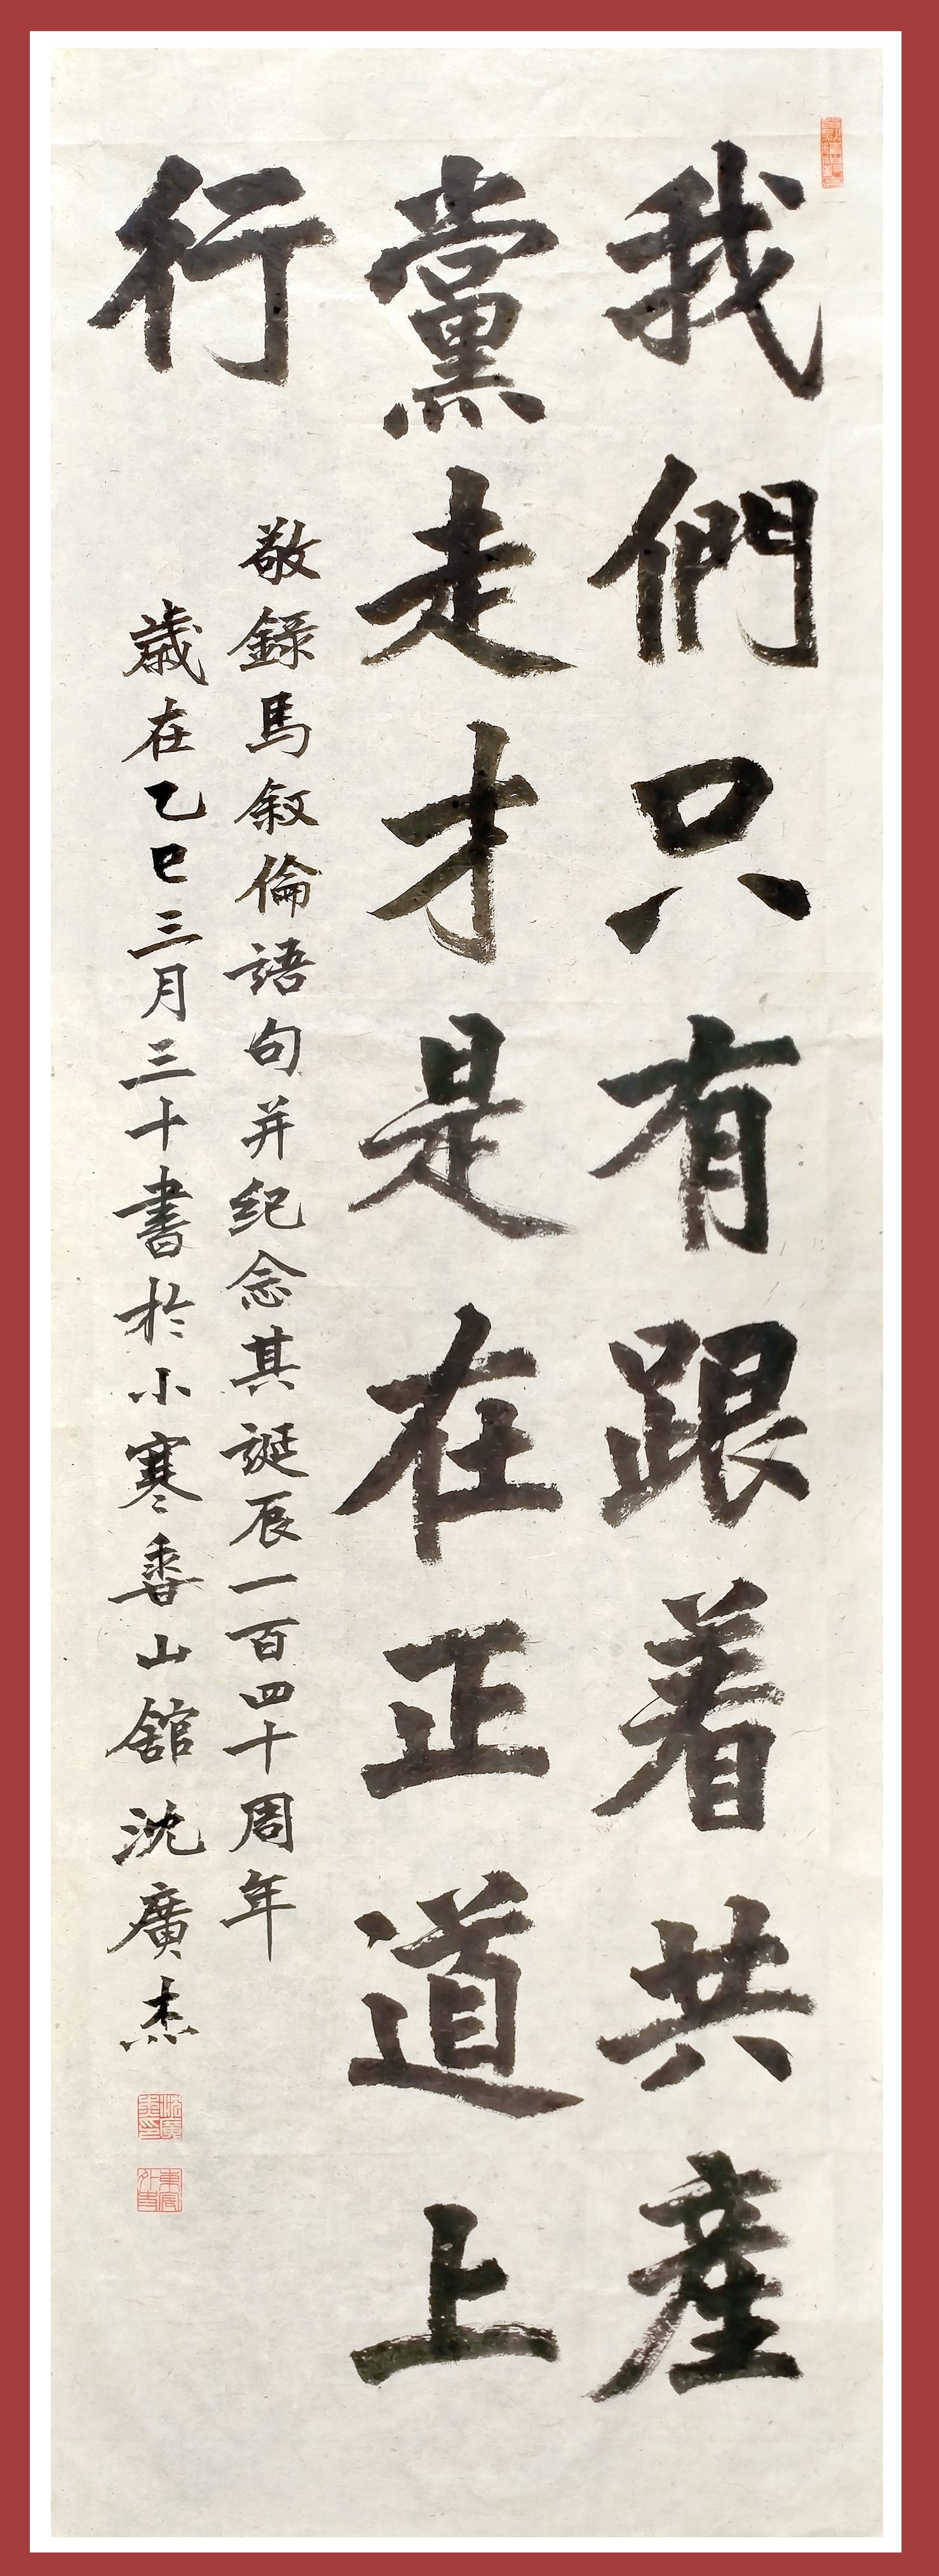 我們只有跟着共產
黨走才是在正道上
行
敬錄馬叙倫語句并纪念其誕辰一百四十周年
歲在乙巳三月三十書於小寒香山館沈廣杰